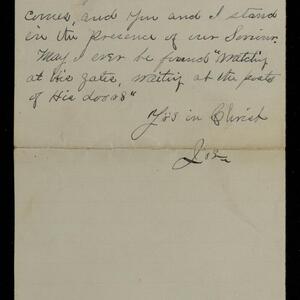 comes, and you and I stand
in the presence of our Saviour.
May I ever be found "Watching
at his gates, waiting at the posts
of His doors"
Yrs in Christ